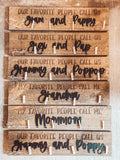 OUR FAVORITE PEOPLE CALL US
Gram and Pappy
OUR FAVORITE PEOPLE CALL US
Gigi and Pap
OUR FAVORITE PEOPLE CALL US
Grammy and Poppop
MY FAVORITE PEOPLE CALL ME
Grandma
MY FAVORITE PEOPLE CALL ME
Mommom
OUR FAVORITE PEOPLE CALL US
Grammy and Poppop